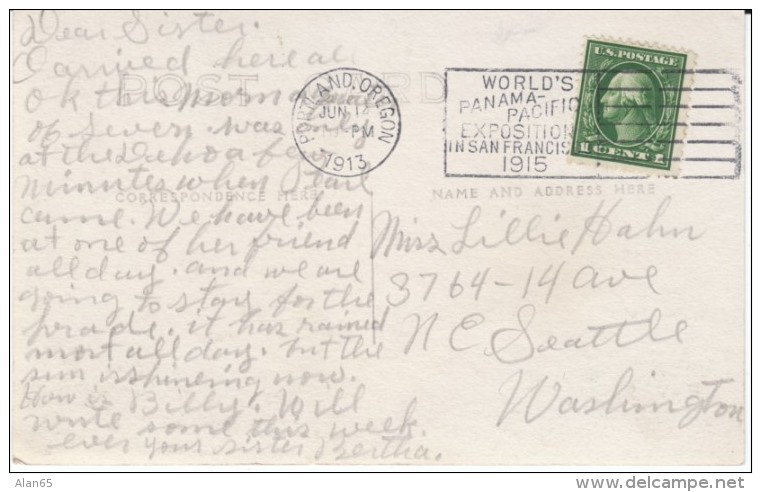 Dear Sister.
I arrived here al
ok this morn
of seven. was only
at the a few
minutes when Earl
came. We have been
at one of her friend
all day. and we are
going to stay for the
prade. it has rained
most all day. but the
sun is shinering now.
How is Billy. Will
write some this week.
ever your sister Bertha.
POST CARD
CORRESPONDENCE HERE
NAME AND ADDRESS HERE
PORTLAND, OREGON
JUN 14
PM
1913
WORLD'S
PANAMA-
PACIFIC
EXPOSITION
IN SAN FRANCIS
1915
U.S. POSTAGE
1 CENT 1
Miss Lillie Hahn
3764-14 ave
N E Seattle
Washington
Alan65
www.delcampe.net